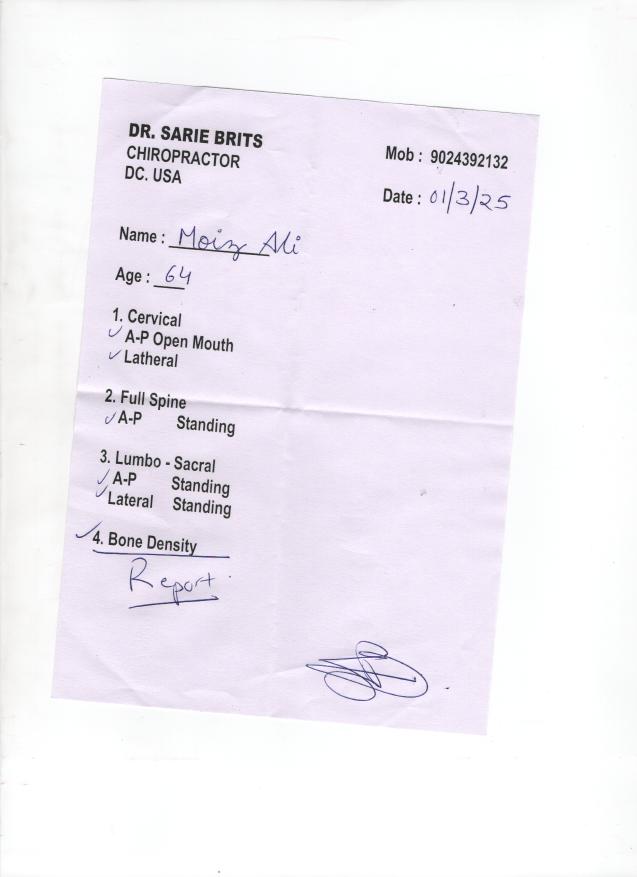 DR. SARIE BRITS
CHIROPRACTOR
DC. USA
Mob : 9024392132
Date : 01/3/25
Name : Moiz Ali
Age : 64
1. Cervical
✓ A-P Open Mouth
✓ Latheral
2. Full Spine
✓ A-P Standing
3. Lumbo - Sacral
✓ A-P Standing
✓ Lateral Standing
✓ 4. Bone Density
Report